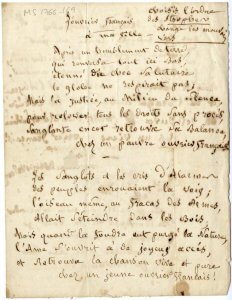 MS 1766-169
choisis l'ordre
des strophes
change les mauvais
vers
l'ouvrier français
à ma ville
Après un tremblement de terre
qui renversa tout ici bas,
le globe ne respirait pas;
Mais la justice, au milieu du silence
pour relever tous les droits sans procès
Sanglante encor retrouve sa Balance
chez un pauvre ouvrier français
Les sanglots et les cris d'alarme
des peuples enrouaient la voix;
l'oiseau même, au fracas des Armes,
Allait s'éteindre dans les bois.
Mais quand la foudre eut purgé la Nature,
l'Ame s'ouvrit à de joyeux accès,
et Retrouva la chanson vive et pure
chez un jeune ouvrier français!